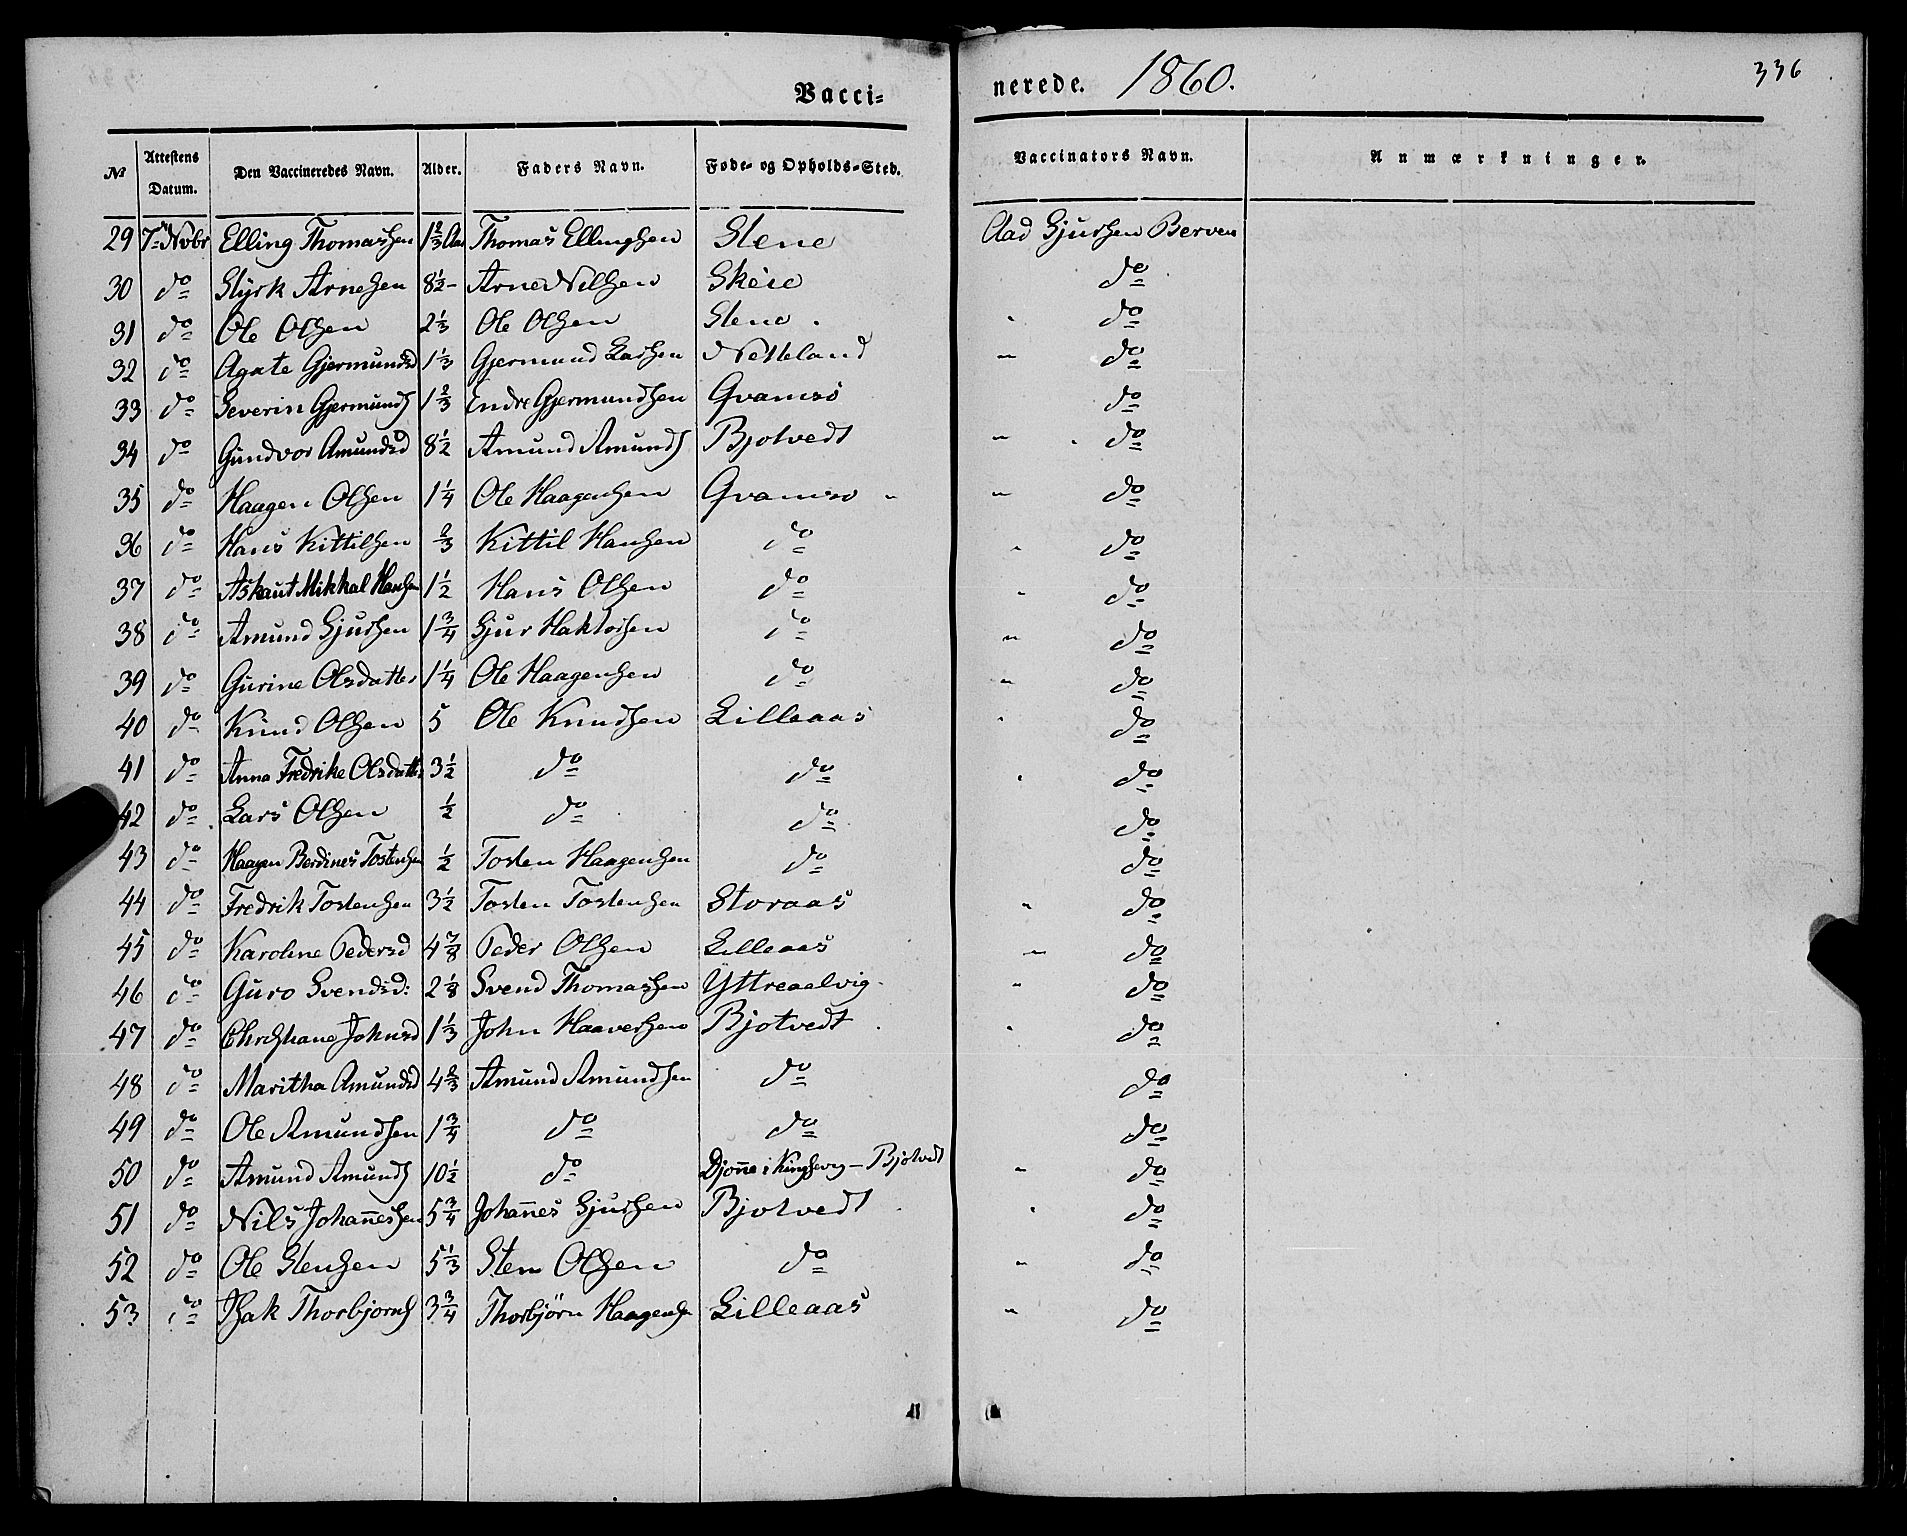 Vacci= nerede. 1860. 336
№ Attestens Datum. Den Vaccineredes Navn. Alder. Faders Navn. Føde- og Opholds-Sted. Vaccinators Navn. Anmærkninger.
29 7de Nvbr Elling Thomassen 1 2/3 Aar Thomas Ellingsen Stene Aad Sjursen Berven
30 do Styrk Arnesen 8 1/2 - Arne Nilsen Skeie do
31 do Ole Olsen 2 1/3 Ole Olsen Stene . " do
32 do Agate Gjermundsd 1 1/3 Gjermund Larsen Netteland " do
33 do Severin Gjermunds 1 2/3 Endre Gjermundsen Qvamsø do
34 do Gundvor Amundsd 8 1/2 Amund Amunds Bjotvedt " do
35 do Haagen Olsen 1 1/4 Ole Haagensen Qvamsø " " do
36 do Hans Kittilsen 2/3 Kittil Hansen do " do
37 do Askaut Mikkal Hansen 1 1/2 Hans Olsen do " do
38 do Amund Sjursen 1 3/4 Sjur Haktorsen do " do
39 do Gurine Olsdatter 1 1/4 Ole Haagensen do " do
40 do Knud Olsen 5 Ole Knudsen Lilleaas " do
41 do Anna Fredrike Olsdatter 3 1/2 do do " do
42 do Lars Olsen 1/2 do do do
43 do Haagen Berdines Tostensen 1/2 Tosten Haagensen do do
44 do Fredrik Tostensen 3 1/2 Tosten Tostensen Storaas " do
45 do Karoline Pedersd 4 7/8 Peder Olsen Lilleaas " do
46 do Guro Svendsd: 2 1/8 Svend Thomassen Yttreaalvig " do
47 do Christiane Johnsd 1 1/3 John Haaversen Bjotvedt . " do
48 do Maritha Amundsd 4 2/3 Amund Amundsen do do
49 do Ole Amundsen 1 3/4 do do do
50 do Amund Amunds 10 1/2 do Djonne i Kingservig - Bjotvedt " do
51 do Nils Johannessen 5 3/4 Johannes Sjursen Bjotvedt " do
52 do Ole Stensen 5 1/3 Sten Olsen do " do
53 do Isak Thorbjorns 3 3/4 Thorbjörn Haagensen Lilleaas " do